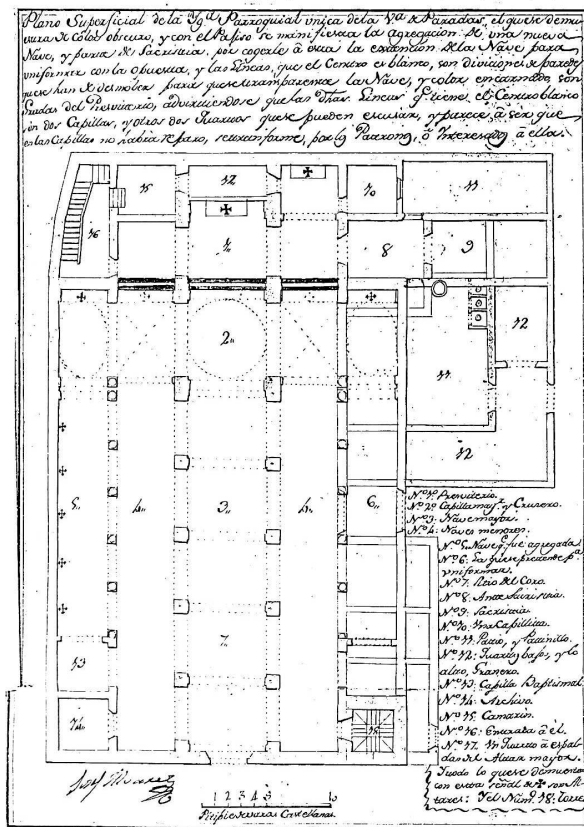 Plano Superficial de la Ygª Parroquial unica de la Vª de Paradas, el que se demu
estra de Color obscuro, y con el Pajiso se manifiesta la agregacion de una nueva
Nave, y parte de Sacristia, por cogerle á esta la extencion de la Nave para
uniformar con la opuesta, y las Lineas, que el Centro es blanco, son divisiones de paredes
que han de demoler para que se transparenten las Nave, y color encarnado, son
Gradas del Presviterio, advirtiendose que las dhas. Lineas q.e tiene el Centro blanco
son dos Capillas, y otros dos Quartos que se pueden escusar, y parece, á ser que
en las Capillas no habra reparo, segun informe, por los Patronos, ó Interesados á ellas.
15
17
10
11
16
1"
8
9
2"
12
11
12
5"
4"
3"
4"
6"
7"
13
14"
18
Nº 1º Presviterio.
Nº 2º Capilla mayr. y Crusero.
Nº 3: Nave mayor.
Nº 4: Naves menores.
Nº 5: Nave q.e fue agregada
Nº 6: La que se pretende pª
uniformar.
Nº 7: Sitio del Coro.
Nº 8: Ante Sacristia.
Nº 9: Sacristia.
Nº 10: Una Capillita.
Nº 11: Patio, y Patinillo.
Nº 12: Quartos bajos, y lo
altos, Granero.
Nº 13: Capilla Baptismal.
Nº 14: Archivo.
Nº 15: Camarin.
Nº 16: Entrada á él.
Nº 17: Un Quarto á espal
das del Altar mayor.
Todo lo que se demuestra
con esta señal de ✠ son Al
tares: Y el Num.º 18: Torre
1 2 3 4 5 10
Castellanas